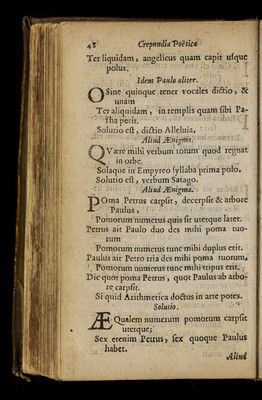 48 Crepundia Poëtica
Ter liquidam, angelicus quam capit usque
polus.
Idem Paulo aliter.
O Sine quinque tener vocales dictio, &
unam
Ter aliquidam, in templis quam sibi Pa-
stha perit.
Solutio est, dictio Alleluia,
Aliud Ænigma.
QVære mihi verbum totum quod regnat
in orbe.
Solaque in Empyreo syllaba prima polo.
Solutio est, verbum Satago.
Aliud Ænigma.
POma Petrus carpsit, decerpsit & arbore
Paulus,
Pomorum numerus quis sit uterque latet.
Petrus ait Paulo duo des mihi poma tuo-
rum
Pomorum numerus tunc mihi duplus erit.
Paulus ait Petro tria des mihi poma tuorum,
Pomorum numerus tunc mihi tripus erit.
Dic quot poma Petrus, quot Paulus ab arbo-
re carpsit.
Si quid Arithmetica doctus in arte potes.
Solutio.
ÆQualem numerum pomorum carpsit
uterque;
Sex etenim Petrus, sex quoque Paulus
habet.
Aliud